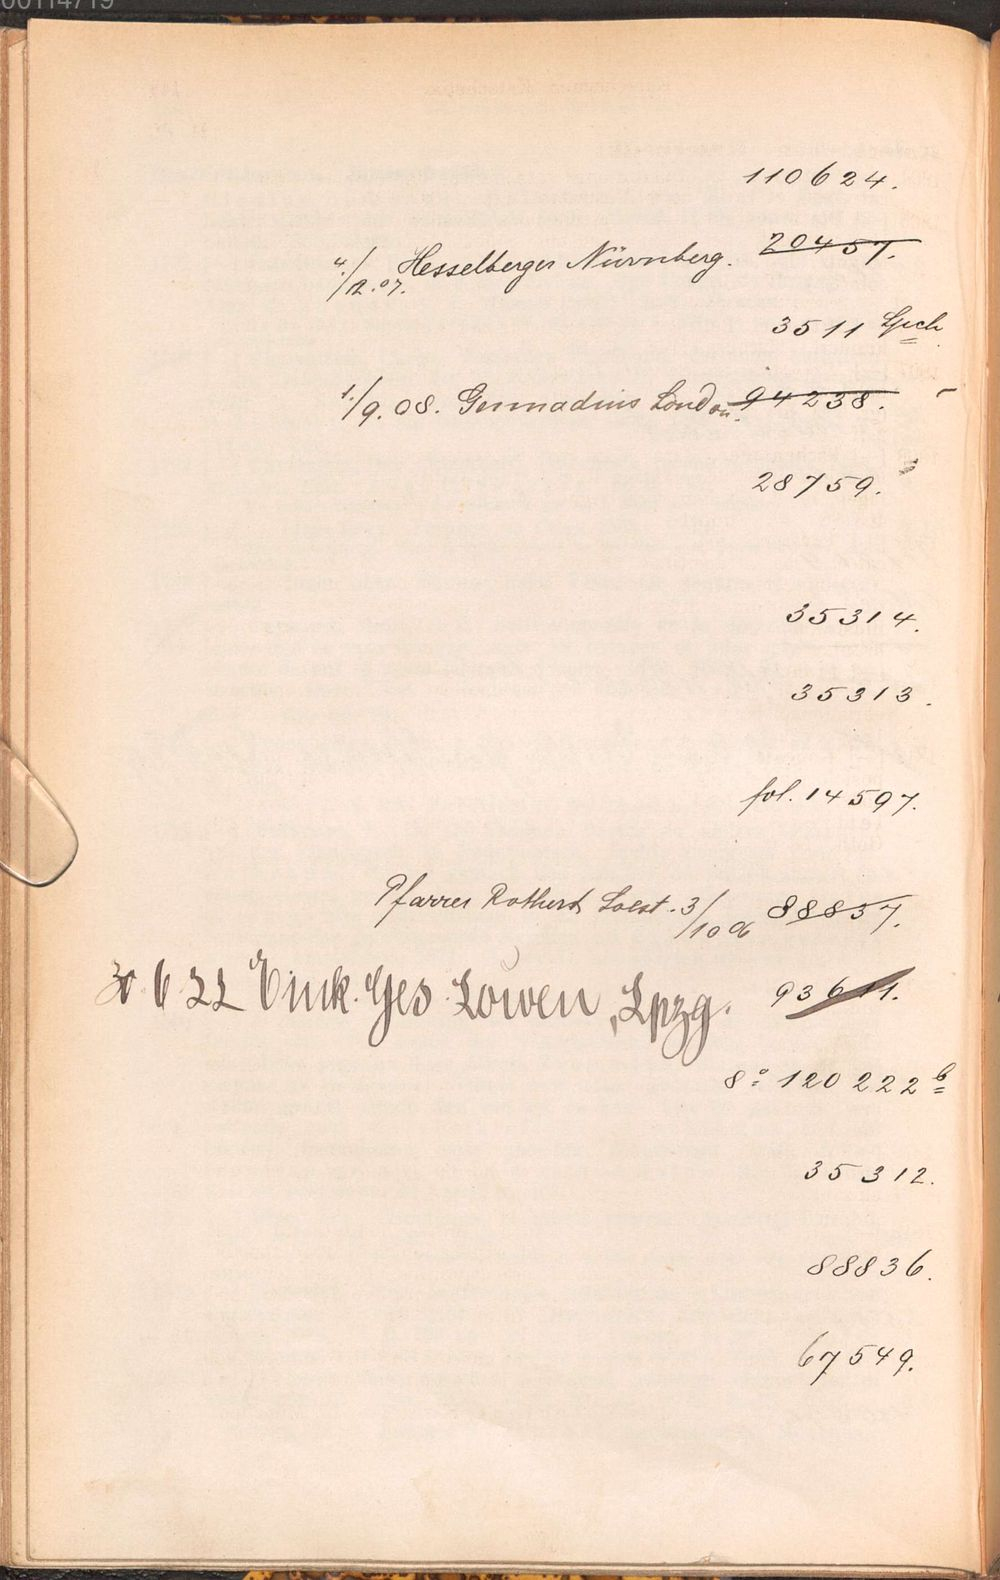 00114719
110624.
4./12.07. Hesselberger Nürnberg. 20457.
3511
1./9.08. Gennadius London. 94238.
28759.
35314.
35313.
fol. 14597.
Pfarrer Rothert Soest. 3/10 06 88837.
30 6 22 Eink. Ges Löwen, Lpzg. 93611.
8° 120222b
35312.
88836.
67549.